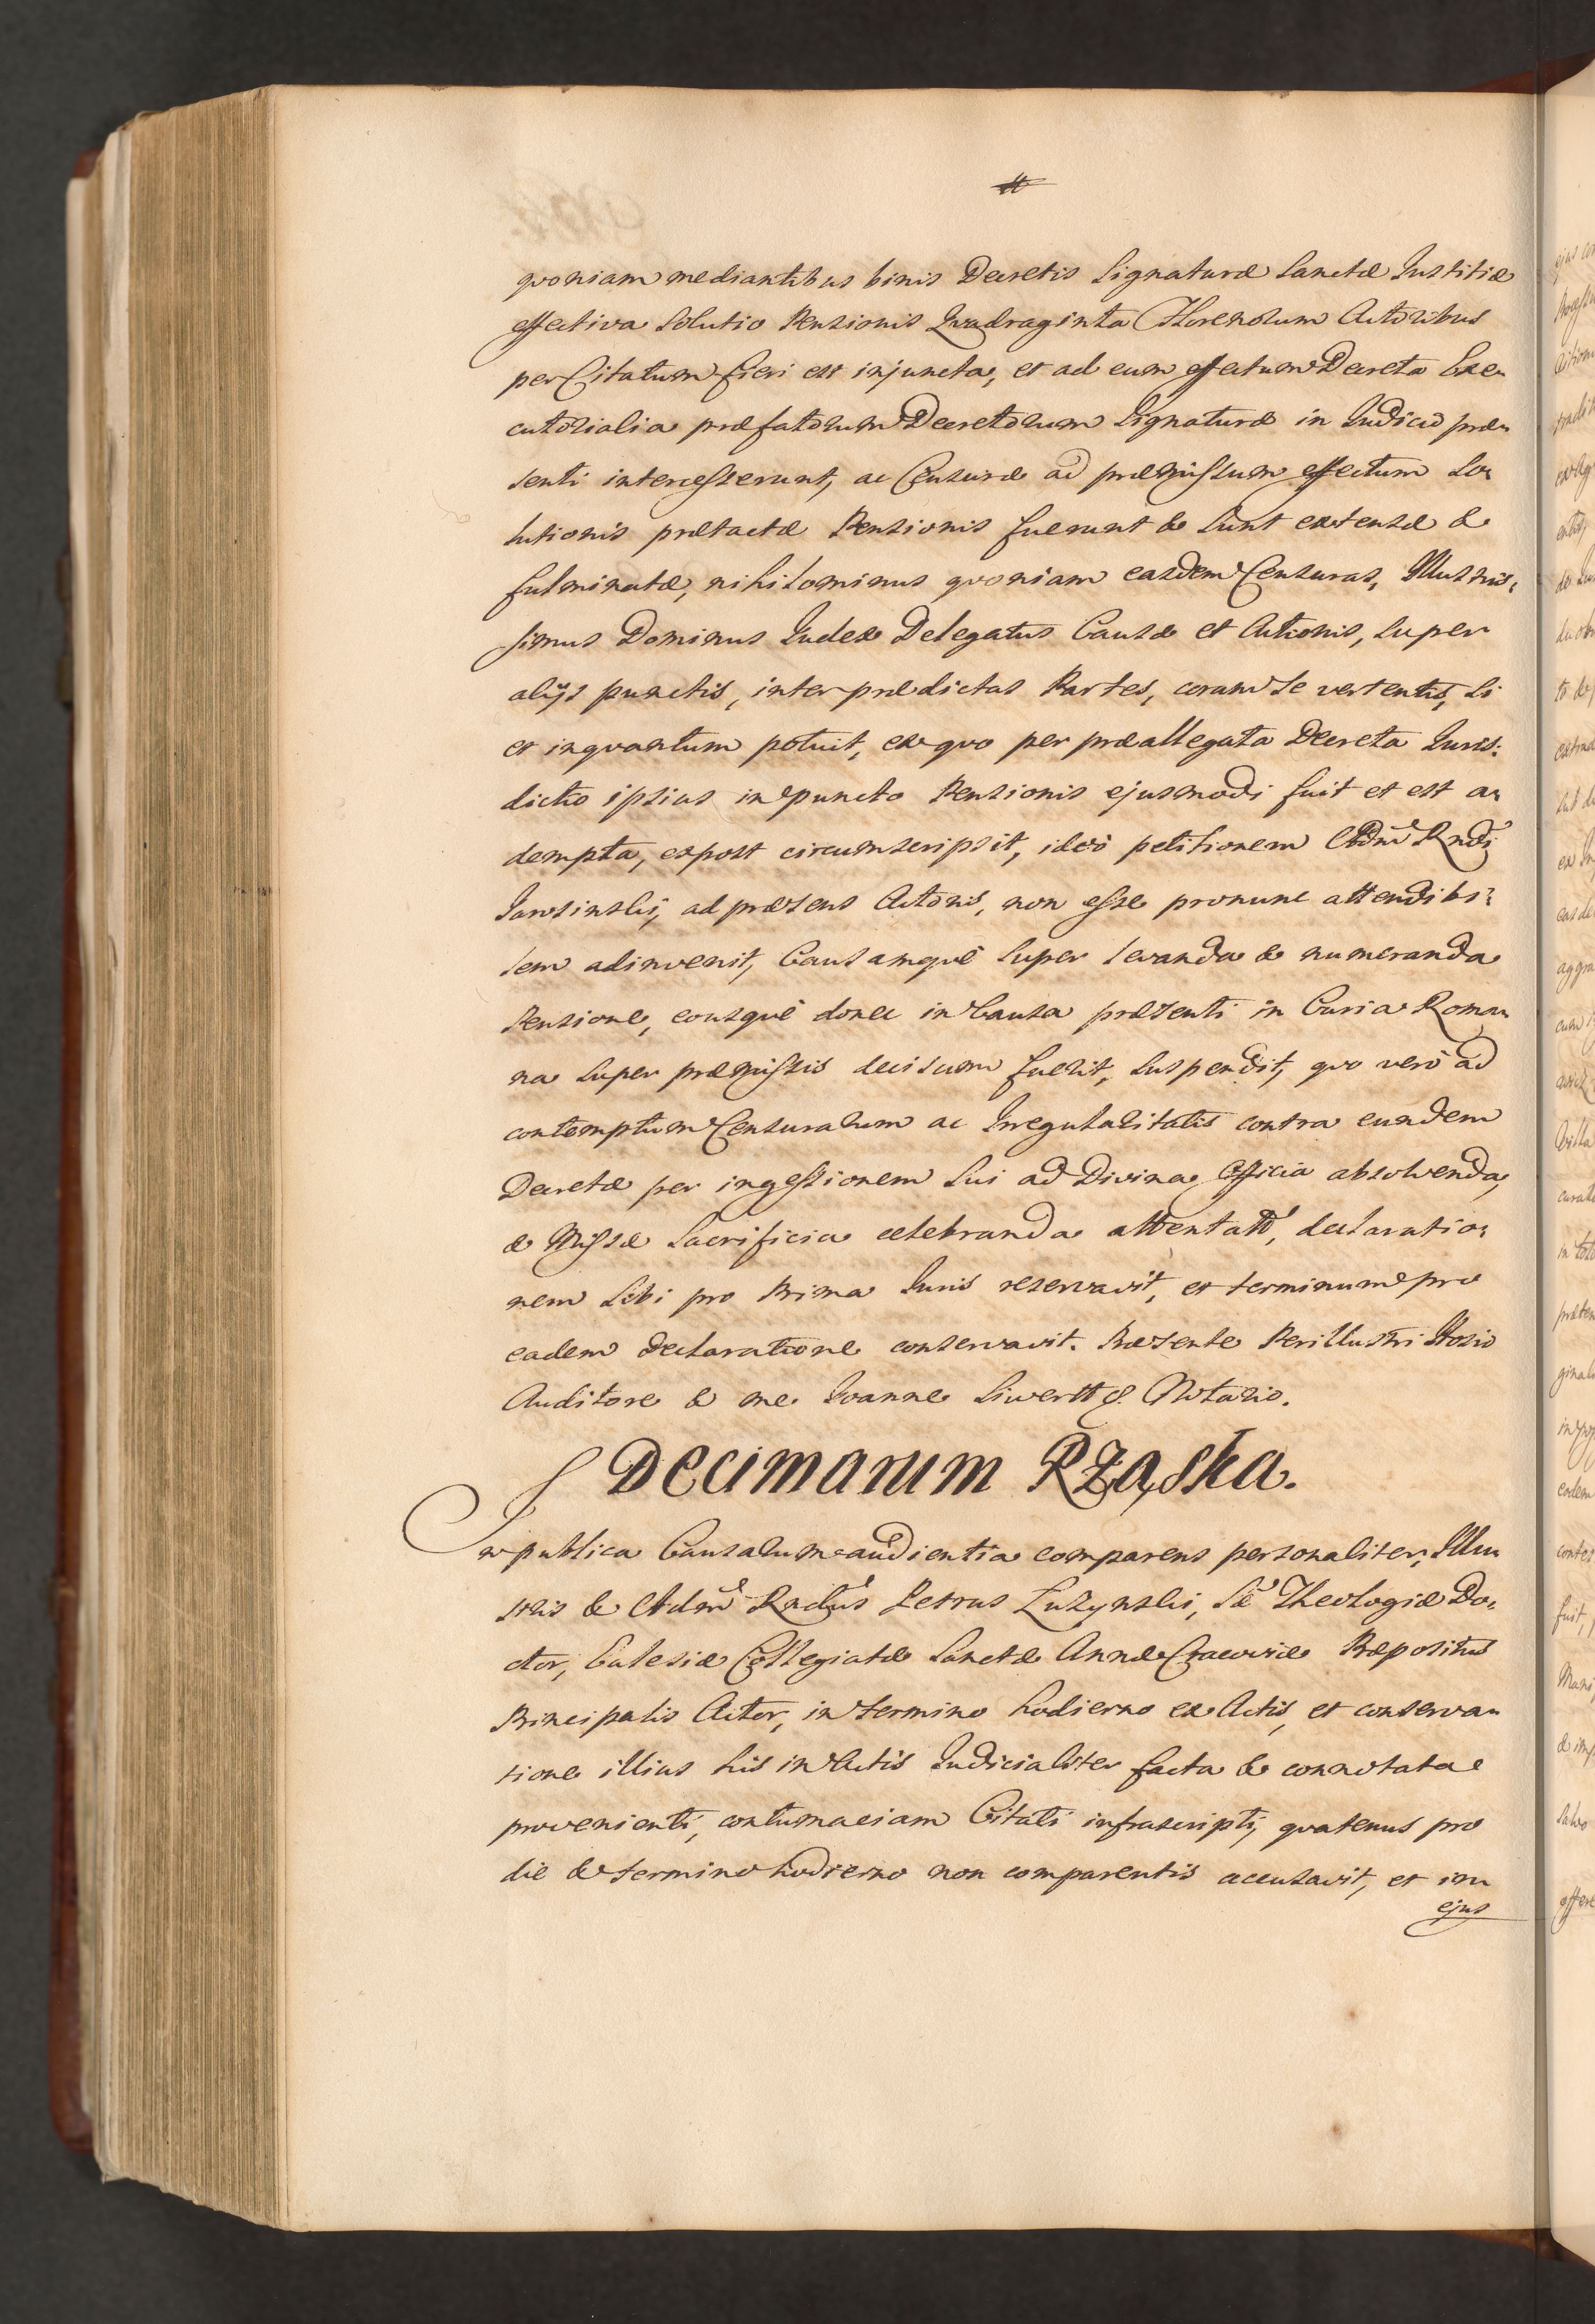 quoniam mediantibus binis Decretis Signaturæ Sanctæ Justitiæ
effectiva Solutio Pensionis Quadraginta Florenorum Actoribus
per Citatum fieri est injuncta, et ad eum effectum Decreta Exe-
cutorialia præfatorum Decretorum Signaturæ in Judicio præ-
senti intercesserunt, ac Censuræ ad præmissum effectum So-
lutionis prætactæ Pensionis fuerunt & sunt extensæ &
fulminatæ, nihilominus quoniam easdem Censuras, Illustris-
simus Dominus Judex Delegatus Causæ et Actionis, super
alijs punctis, inter prædictas Partes, coram se vertentis, si
et inquantum potuit, ex quo per præallegata Decreta Juris:
dictio ipsius in puncto Pensionis ejusmodi fuit et est a-
dempta, expost circumscripsit, ideò petitionem Adm Rndi
Jarosinski, ad præsens Actoris, non esse pronunc attendibi:
lem adinvenit, Causamquè super levanda & numeranda
Pensione, eousquè donec in Causa præsenti in Curia Roma-
na super præmissis decisum fuerit, suspendit, quo verò ad
contemptum Censurarum ac Irregularitatis contra eundem
Decretæ per ingestionem sui ad Divina Officia absolvenda,
& Missæ Sacrificia celebranda attentatæ, declaratio-
nem sibi pro Prima Juris reservavit, et terminum pro
eadem declaratione conservavit. Præsente Perillustri Hosio
Auditore & me Joanne Siwertt &. Notario.
Decimarum Rząska.
In publica Causarum audientia comparens personaliter, Illu-
stris & Adm Rndus Petrus Luzynski, S Theologiæ Do-
ctor, Ecclesiæ Collegiatæ Sanctæ Annæ Cracoviæ Præpositus
Principalis Actor, in termino hodierno ex Actis, et conserva-
tione illius his in Actis Judicialiter facta & connotata
provenienti, contumaciam Citati infrascripti, quatenus pro
die & termino hodierno non comparentis accusavit, et in
ejus